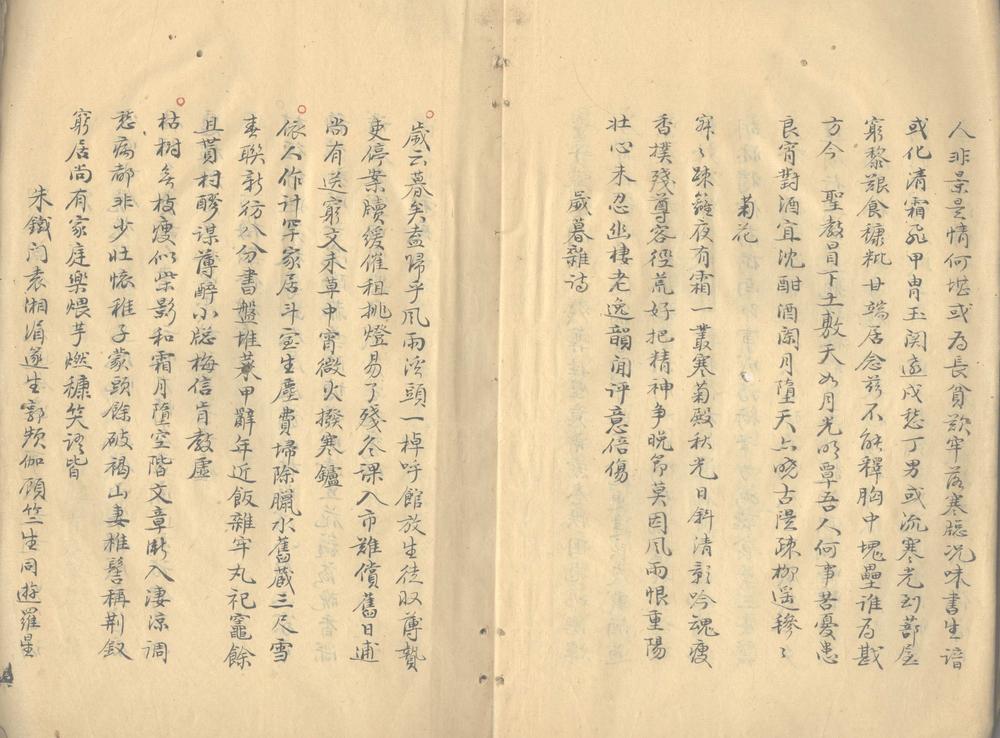 人非景是情何堪或為長貧歎牢落寒牕况味書生諳
或化清霜飛甲冑玉関遠戍愁丁男或流寒光到蔀屋
窮黎艱食糠粃甘端居念茲不能釋胸中塊壘誰為戡
方今 聖教冒下土敷天如月光明覃吾人何事苦憂患
良宵對酒宜沈酣酒闌月墮天亦曉古隄疎柳遥毿〻
菊花
寂〻疎籬夜有霜一叢寒菊殿秋光日斜清影吟魂瘦
香撲殘尊容徑荒好把精神争晚節莫因風雨恨重陽
壯心未忍幽棲老逸韻閒評意倍傷
歲暮雜詩
歲云暮矣盍歸乎風雨溪頭一棹呼館放生徒収薄贄
吏停案牘緩催租挑燈易了殘冬課入市難償舊日逋
尚有送窮文未草中宵微火撥寒鑪
依人作計罕家居斗室生塵費掃除臘水舊蔵三尺雪
春聯新彷八分書盤堆菜甲辭年近飯雜牢丸祀竈餘
且貰村醪謀薄醉小牕梅信肯教虚
枯樹無枝瘦似柴影和霜月墮空階文章漸入淒凉調
愁病都非少壯懷稚子蒙頭餘破褐山妻椎髻稱荆釵
窮居尚有家庭樂煨芋燃糠笑語皆
朱鐵門袁湘湄邃生郭頻伽顧竺生同遊羅星